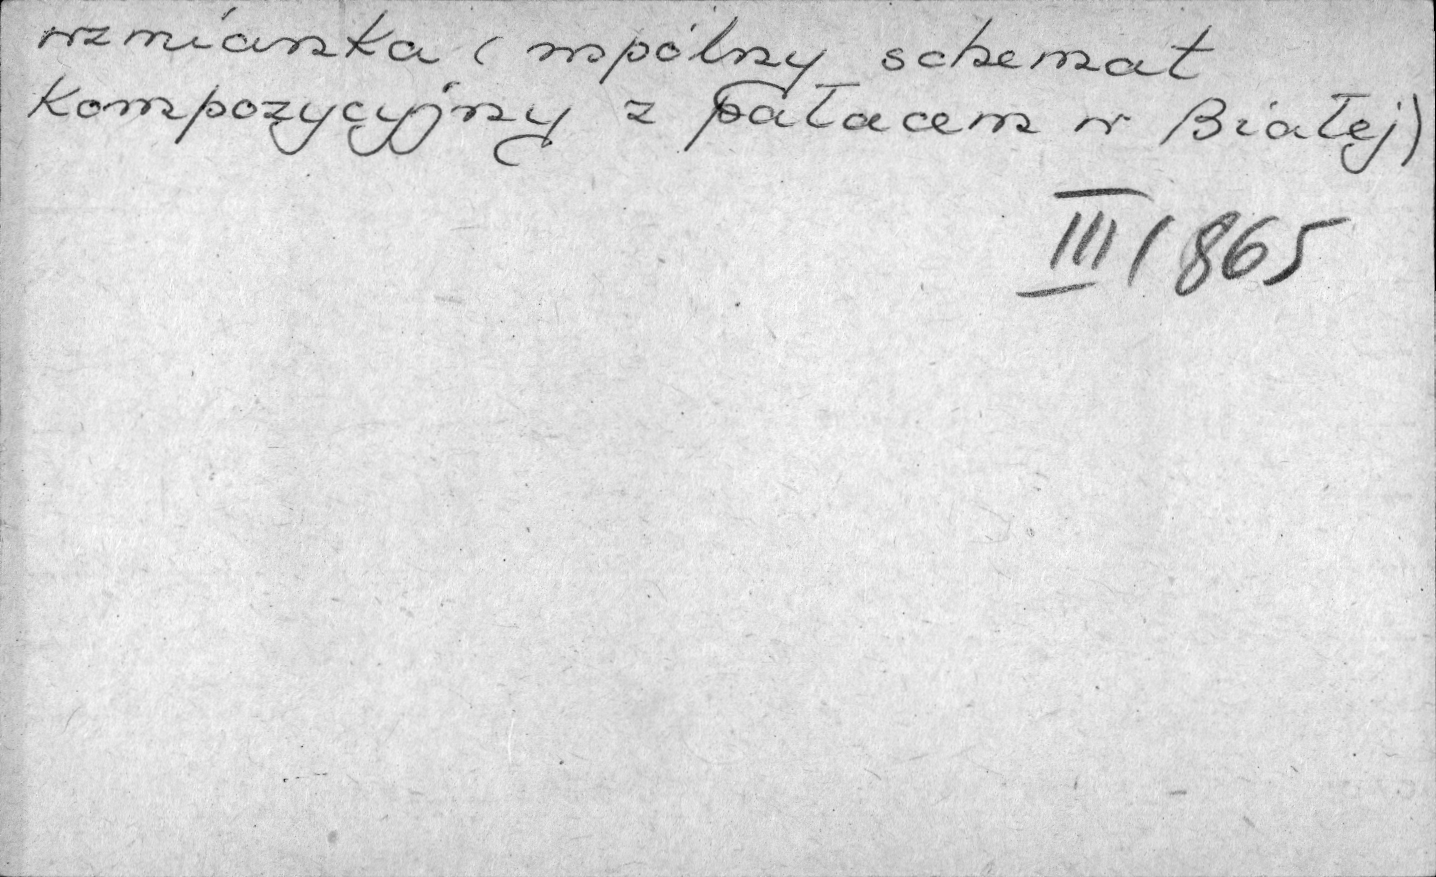 wzmianka (wspólny schemat
kompozycyjny z pałacem w Białej)
III/865